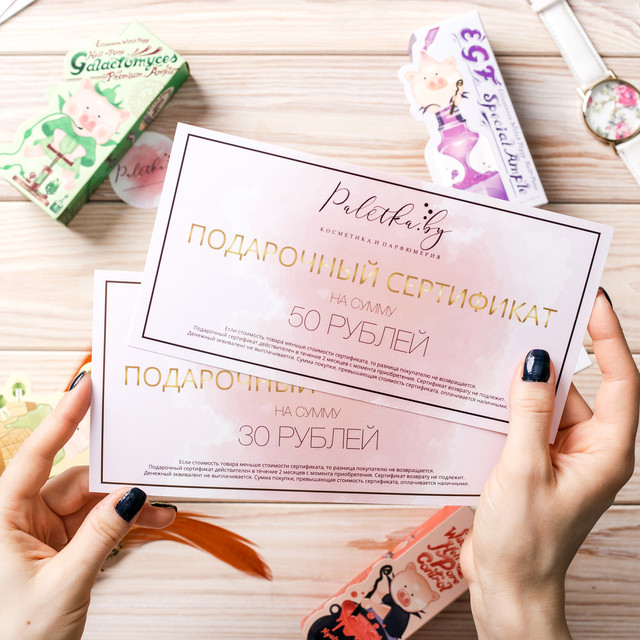 Elizavecca Witch Piggy
Hell-Pore
Galactomyces
Premium Ample
EGF
Special Ample
Paletka
Paletka.by
КОСМЕТИКА И ПАРФЮМЕРИЯ
ПОДАРОЧНЫЙ СЕРТИФИКАТ
НА СУММУ
50 РУБЛЕЙ
Если стоимость товара меньше стоимости сертификата, то разница покупателю не возвращается.
Подарочный сертификат действителен в течение 2 месяцев с момента приобретения. Сертификат возврату не подлежит.
Денежный эквивалент не выплачивается. Сумма покупки, превышающая стоимость сертификата, оплачивается наличными.
ПОДАРОЧНЫЙ
НА СУММУ
30 РУБЛЕЙ
Если стоимость товара меньше стоимости сертификата, то разница покупателю не возвращается.
Подарочный сертификат действителен в течение 2 месяцев с момента приобретения. Сертификат возврату не подлежит.
Денежный эквивалент не выплачивается. Сумма покупки, превышающая стоимость сертификата, оплачивается наличными.